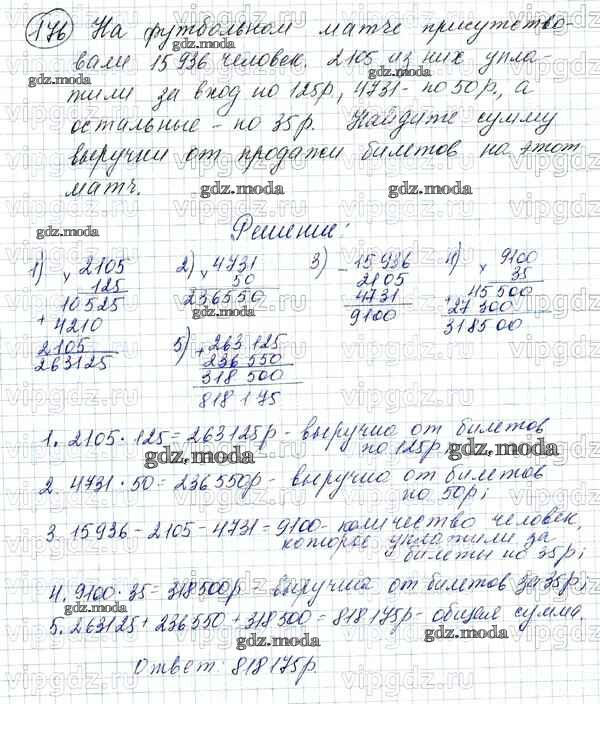 176 На футбольном матче присутство-
вали 15936 человек. 2105 из них упла-
тили за вход по 125р, 4731- по 50р, а
остальные - по 35р. Найдите сумму
выручки от продажи билетов на этот
матч.
Решение:
1) × 2105
125
10525
+ 4210
2105
263125
2) × 4731
50
236550
3) - 15936
2105
4731
9100
4) × 9100
35
+ 45500
27300
318500
5) + 263125
236550
318500
818175
1. 2105·125=263125р- выручка от билетов
по 125р
2. 4731·50=236550р- выручка от билетов
по 50р;
3. 15936-2105-4731=9100- количество человек,
которое уплатили за
билеты по 35р;
4. 9100·35=318500р выручка от билетов за 35р;
5. 263125+236550+318500=818175р- общая сумма.
Ответ: 818175р.
gdz.moda
vipgdz.ru